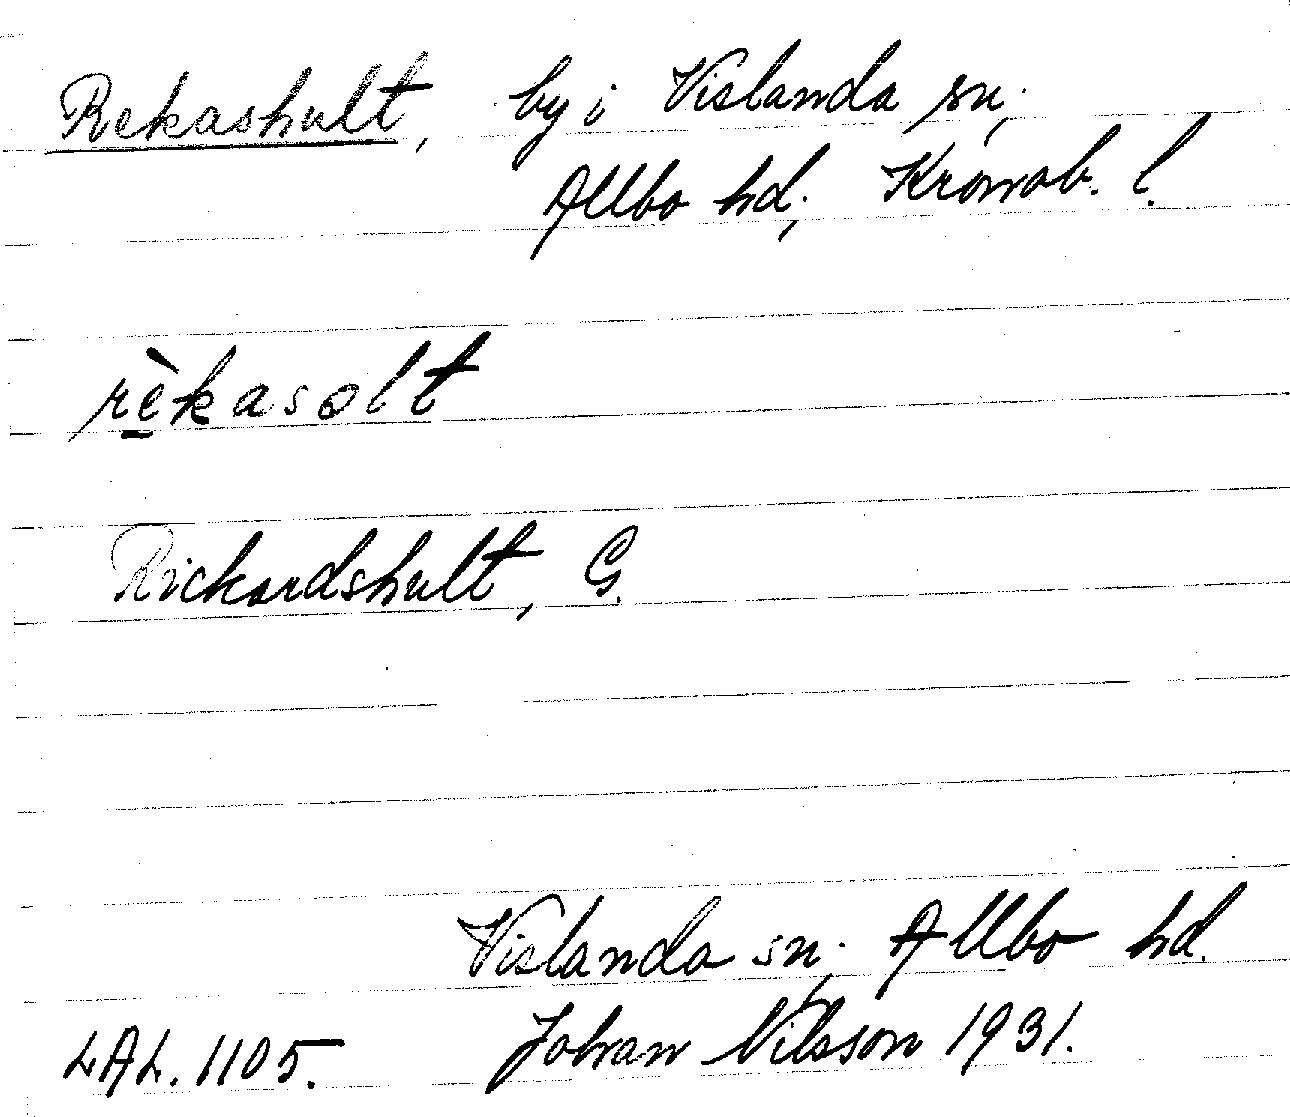 Rekashult, by i Vislanda sn,
Allbo hd, Kronob. l.
rèkasolt
Rickardshult, G.
Vislanda sn, Allbo hd.
LAL. 1105. Johan Nilsson 1931.